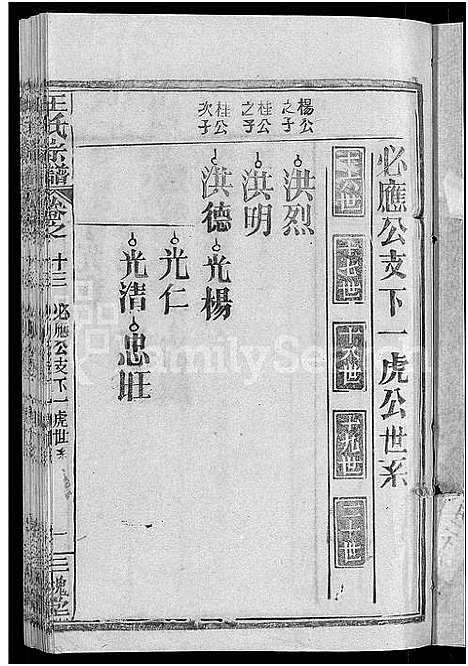 必應公支下一虎公世系
十六世
十七世
十八世
十九世
二十世
楊公之子
洪烈
桂公之子
洪明
桂公次子
洪德
光楊
光仁
光清
忠旺
王氏宗譜
卷之十三
必應公支下一虎世系
一
三槐堂
FamilySearch